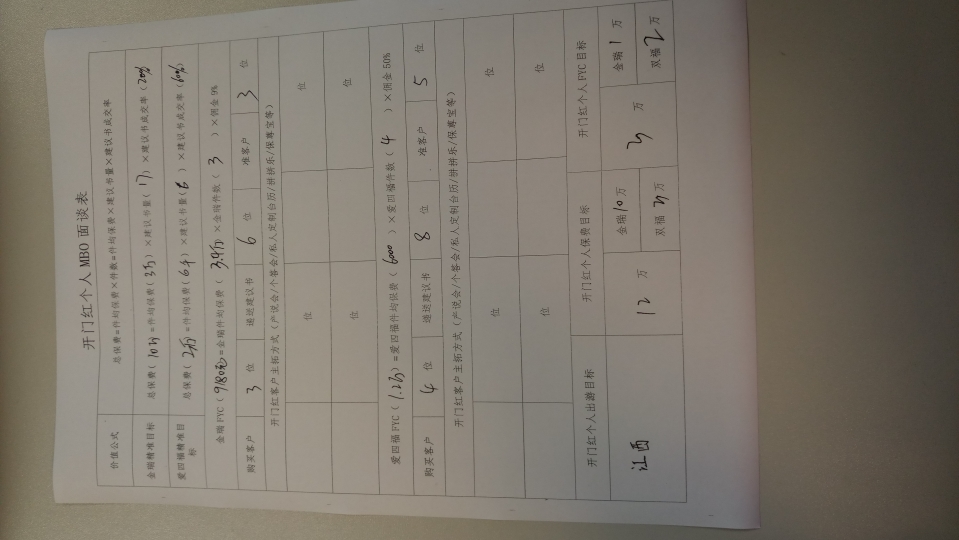 开门红个人MBO面谈表
价值公式 总保费=件均保费×件数=件均保费×建议书量×建议书成交率
金瑞精准目标 总保费(10万)=件均保费(3万)×建议书量(17)×建议书成交率(20%)
爱四福精准目标 总保费( )=件均保费(6千)×建议书量(6)×建议书成交率(60%)
金瑞FYC(9180元)=金瑞件均保费(3.4万)×金瑞件数(3)×佣金9%
购买客户 3 位 递送建议书 6 位 准客户 3 位
开门红客户主拓方式(产说会/个答会/私人定制台历/拼拼乐/保尊宝等)
位 位 位
位 位 位
爱四福FYC(1.2万)=爱四福件均保费(6000)×爱四福件数(4)×佣金50%
购买客户 4 位 递送建议书 8 位 准客户 5 位
开门红客户主拓方式(产说会/个答会/私人定制台历/拼拼乐/保尊宝等)
位 位
位 位
开门红个人出游目标 开门红个人保费目标 开门红个人FYC目标
江西 12 万 金瑞10万 3 万 金瑞1万
双福3万 双福2万